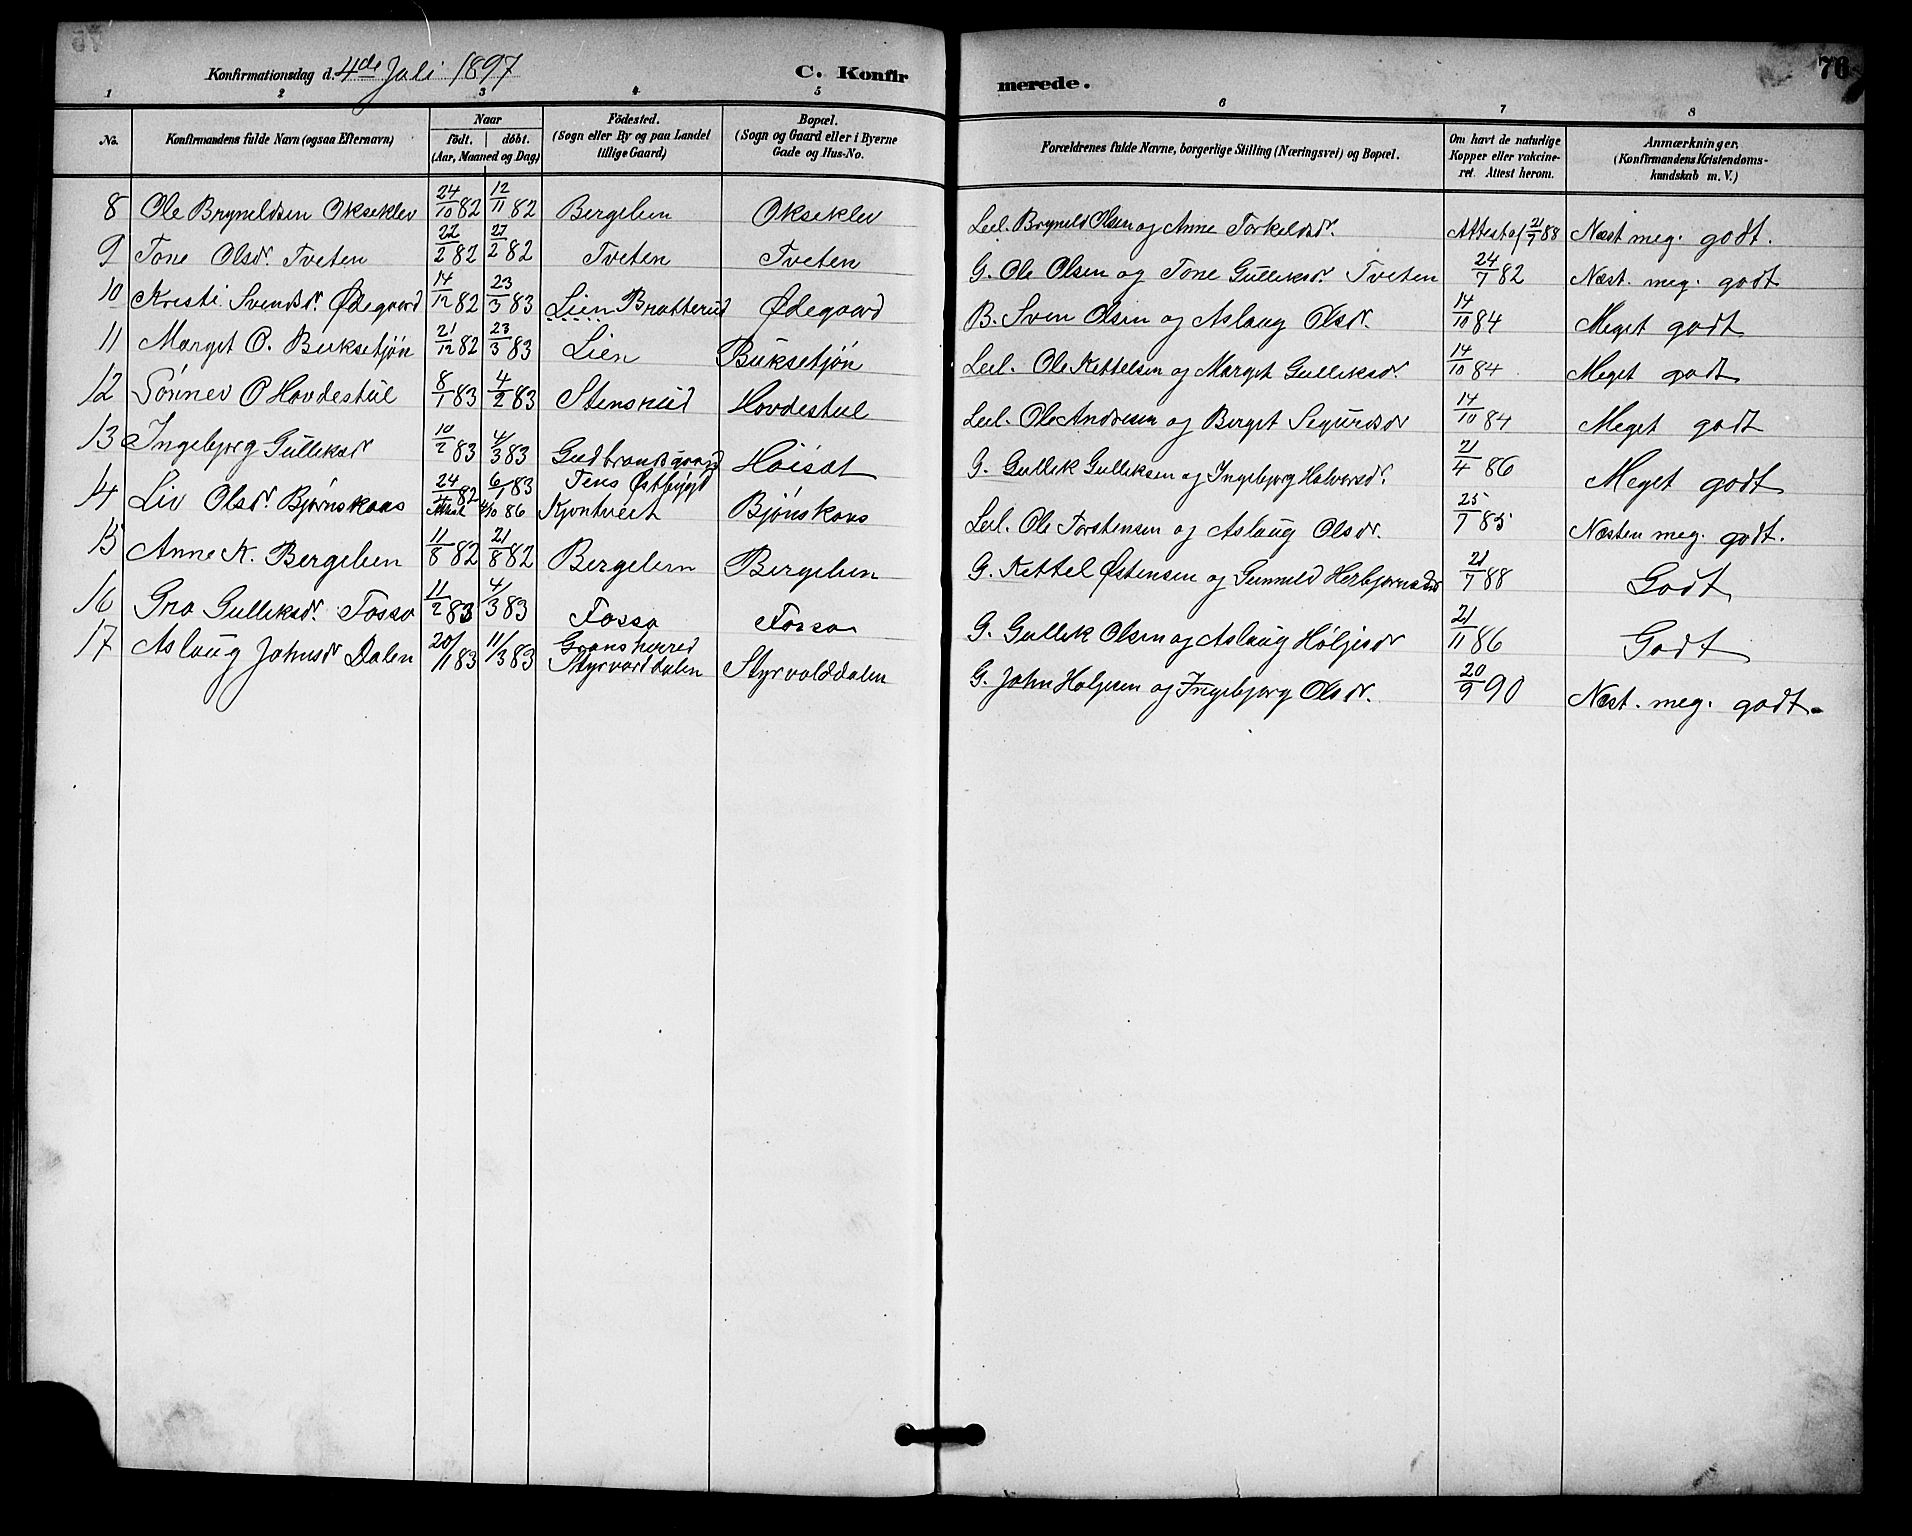 Konfirmationsdag d. 4de Juli 1897
C. Konfirmerede.
76
1 2 3 4 5 6 7 8
No. | Konfirmandens fulde Navn (ogsaa Efternavn) | Naar födt. | döbt. (Aar, Maaned og Dag) | Födested. (Sogn eller By og paa Landet tillige Gaard) | Bopæl. (Sogn og Gaard eller i Byerne Gade og Hus-No. | Forældrenes fulde Navne, borgerlige Stilling (Næringsvei) og Bopæl. | Om havt de naturlige Kopper eller vakcineret. Attest herom. | Anmærkninger. (Konfirmandens Kristendomskundskab m. V.)
8 Ole Bryneldsen Okseklev 24/10 82 12/11 82 Bergelien Okseklev Leil. Bryneld Olsen og Anne Torkeldsdr. Attest af 21/7 88 Næst meg. godt.
9 Tone Olsdr. Tveten 22/2 82 27/2 82 Tveten Tveten G. Ole Olsen og Tone Gulliksdr. Tveten 24/7 82 Næst. meg. godt
10 Kristi Svensdr. Ødegaard 14/12 82 23/3 83 Lien Bratterud Ødegaard B. Sven Olsen og Aslaug Olsdr. 14/10 84 Meget godt
11 Marget O. Buksetjøn 21/12 82 23/3 83 Lien Buksetjøn Leil. Ole Kettelsen og Marget Gulliksdr. 14/10 84 Meget godt
12 Sønnev O Hovdestul 8/1 83 4/2 83 Stensrud Hovdestul Leil. Ole Andresen og Berget Sigurdsdr 14/10 84 Meget godt
13 Ingebjørg Gulliksdr 10/2 83 4/3 83 Gudbrandsgaard Høisæt G. Gullik Gulliksen og Ingebjørg Halvorsdr. 21/4 86 Meget godt
14 Liv Olsdr. Bjørnskaas 24/ 82 6/1 83 Tins Østbygd Kjontveit Bjønskaas Leil. Ole Torstensen og Aslaug Olsdr. 25/7 85 Næsten meg. godt.
Attest 4/10 86
15 Anne K. Bergelien 11/8 82 21/8 82 Bergelien Bergelien G. Kettel Østensen og Gunnild Herbjørnsdr 21/7 88 Godt
16 Gro Gulliksdr. Fosso 11/2 83 4/3 83 Fosso Fosso G. Gullik Olsen og Aslaug Høljesdr 21/11 86 Godt
17 Aslaug Johnsdr Dalen 20/11 83 11/3 83 Gransherred Styrvorddalen Styrvolddalen G. John Holjesen og Ingebjørg Olsdr. 20/9 90 Næst. meg. godt.